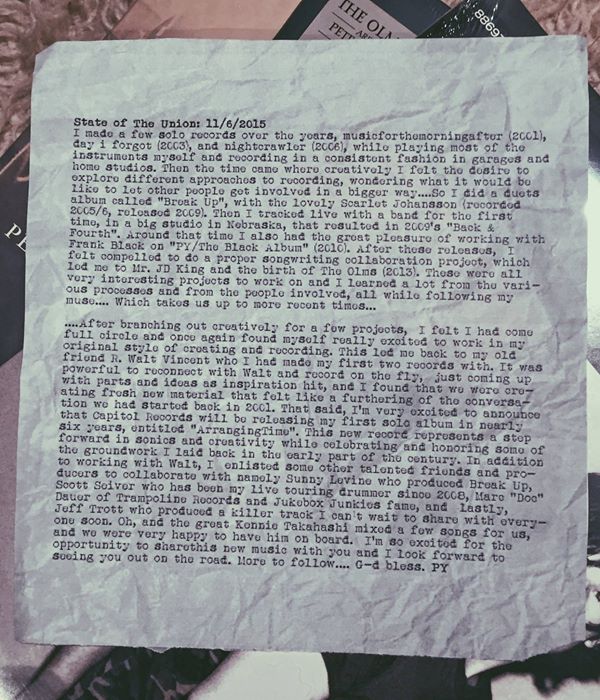 THE OLM
ARE
PETE
8869
PE
State of The Union: 11/6/2015
I made a few solo records over the years, musicforthemorningafter (2001),
day i forgot (2003), and nightcrawler (2006), while playing most of the
instruments myself and recording in a consistent fashion in garages and
home studios. Then the time came where creatively I felt the desire to
explore different approaches to recording, wondering what it would be
like to let other people get involved in a bigger way....So I did a duets
album called "Break Up", with the lovely Scarlet Johansson (recorded
2005/6, released 2009). Then I tracked live with a band for the first
time, in a big studio in Nebraska, that resulted in 2009's "Back &
Fourth". Around that time I also had the great pleasure of working with
Frank Black on "PY/The Black Album" (2010). After these releases, I
felt compelled to do a proper songwriting collaboration project, which
led me to Mr. JD King and the birth of The Olms (2013). These were all
very interesting projects to work on and I learned a lot from the vari-
ous processes and from the people involved, all while following my
muse.... Which takes us up to more recent times...
....After branching out creatively for a few projects, I felt I had come
full circle and once again found myself really excited to work in my
original style of creating and recording. This led me back to my old
friend R. Walt Vincent who I had made my first two records with. It was
powerful to reconnect with Walt and record on the fly, just coming up
with parts and ideas as inspiration hit, and I found that we were cre-
ating fresh new material that felt like a furthering of the conversa-
tion we had started back in 2001. That said, I'm very excited to announce
that Capitol Records will be releasing my first solo album in nearly
six years, entitled "ArrangingTime". This new record represents a step
forward in sonics and creativity while celebrating and honoring some of
the groundwork I laid back in the early part of the century. In addition
to working with Walt, I enlisted some other talented friends and pro-
ducers to collaborate with namely Sunny Levine who produced Break Up,
Scott Seiver who has been my live touring drummer since 2008, Marc "Doc"
Dauer of Trampoline Records and Jukebox Junkies fame, and lastly,
Jeff Trott who produced a killer track I can't wait to share with every-
one soon. Oh, and the great Kennie Takahashi mixed a few songs for us,
and we were very happy to have him on board. I'm so excited for the
opportunity to sharethis new music with you and I look forward to
seeing you out on the road. More to follow.... G-d bless. PY